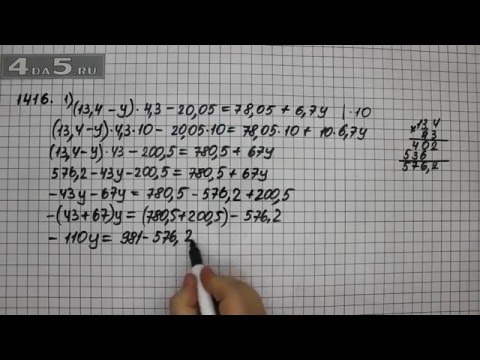 4DA5.RU
1416. 1) (13,4 - y) · 4,3 - 20,05 = 78,05 + 6,7y | · 10
(13,4 - y) · 4,3 · 10 - 20,05 · 10 = 78,05 · 10 + 10 · 6,7y
(13,4 - y) · 43 - 200,5 = 780,5 + 67y
576,2 - 43y - 200,5 = 780,5 + 67y
-43y - 67y = 780,5 - 576,2 + 200,5
-(43 + 67)y = (780,5 + 200,5) - 576,2
-110y = 981 - 576,2
13,4
× 43
402
536
576,2